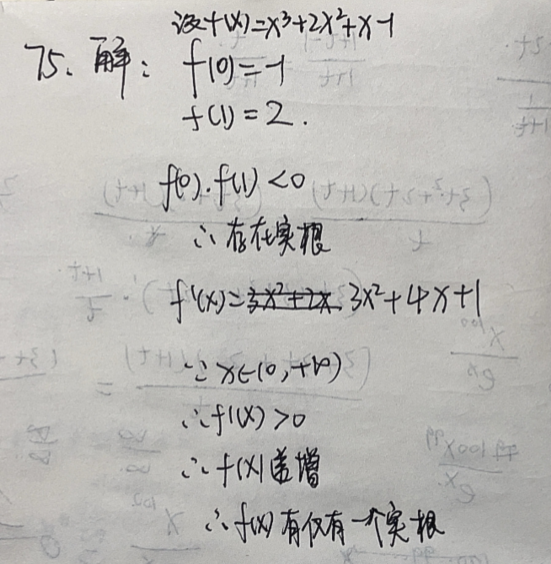 设f(x)=x³+2x²+x-1
75. 解: f(0)=-1
f(1)=2.
f(0)·f(1)<0
∴存在实根
f'(x)=3x²+2x 3x²+4x+1
∵x∈(0,+∞)
∴f'(x)>0
∴f(x)递增
∴f(x)有仅有一个实根